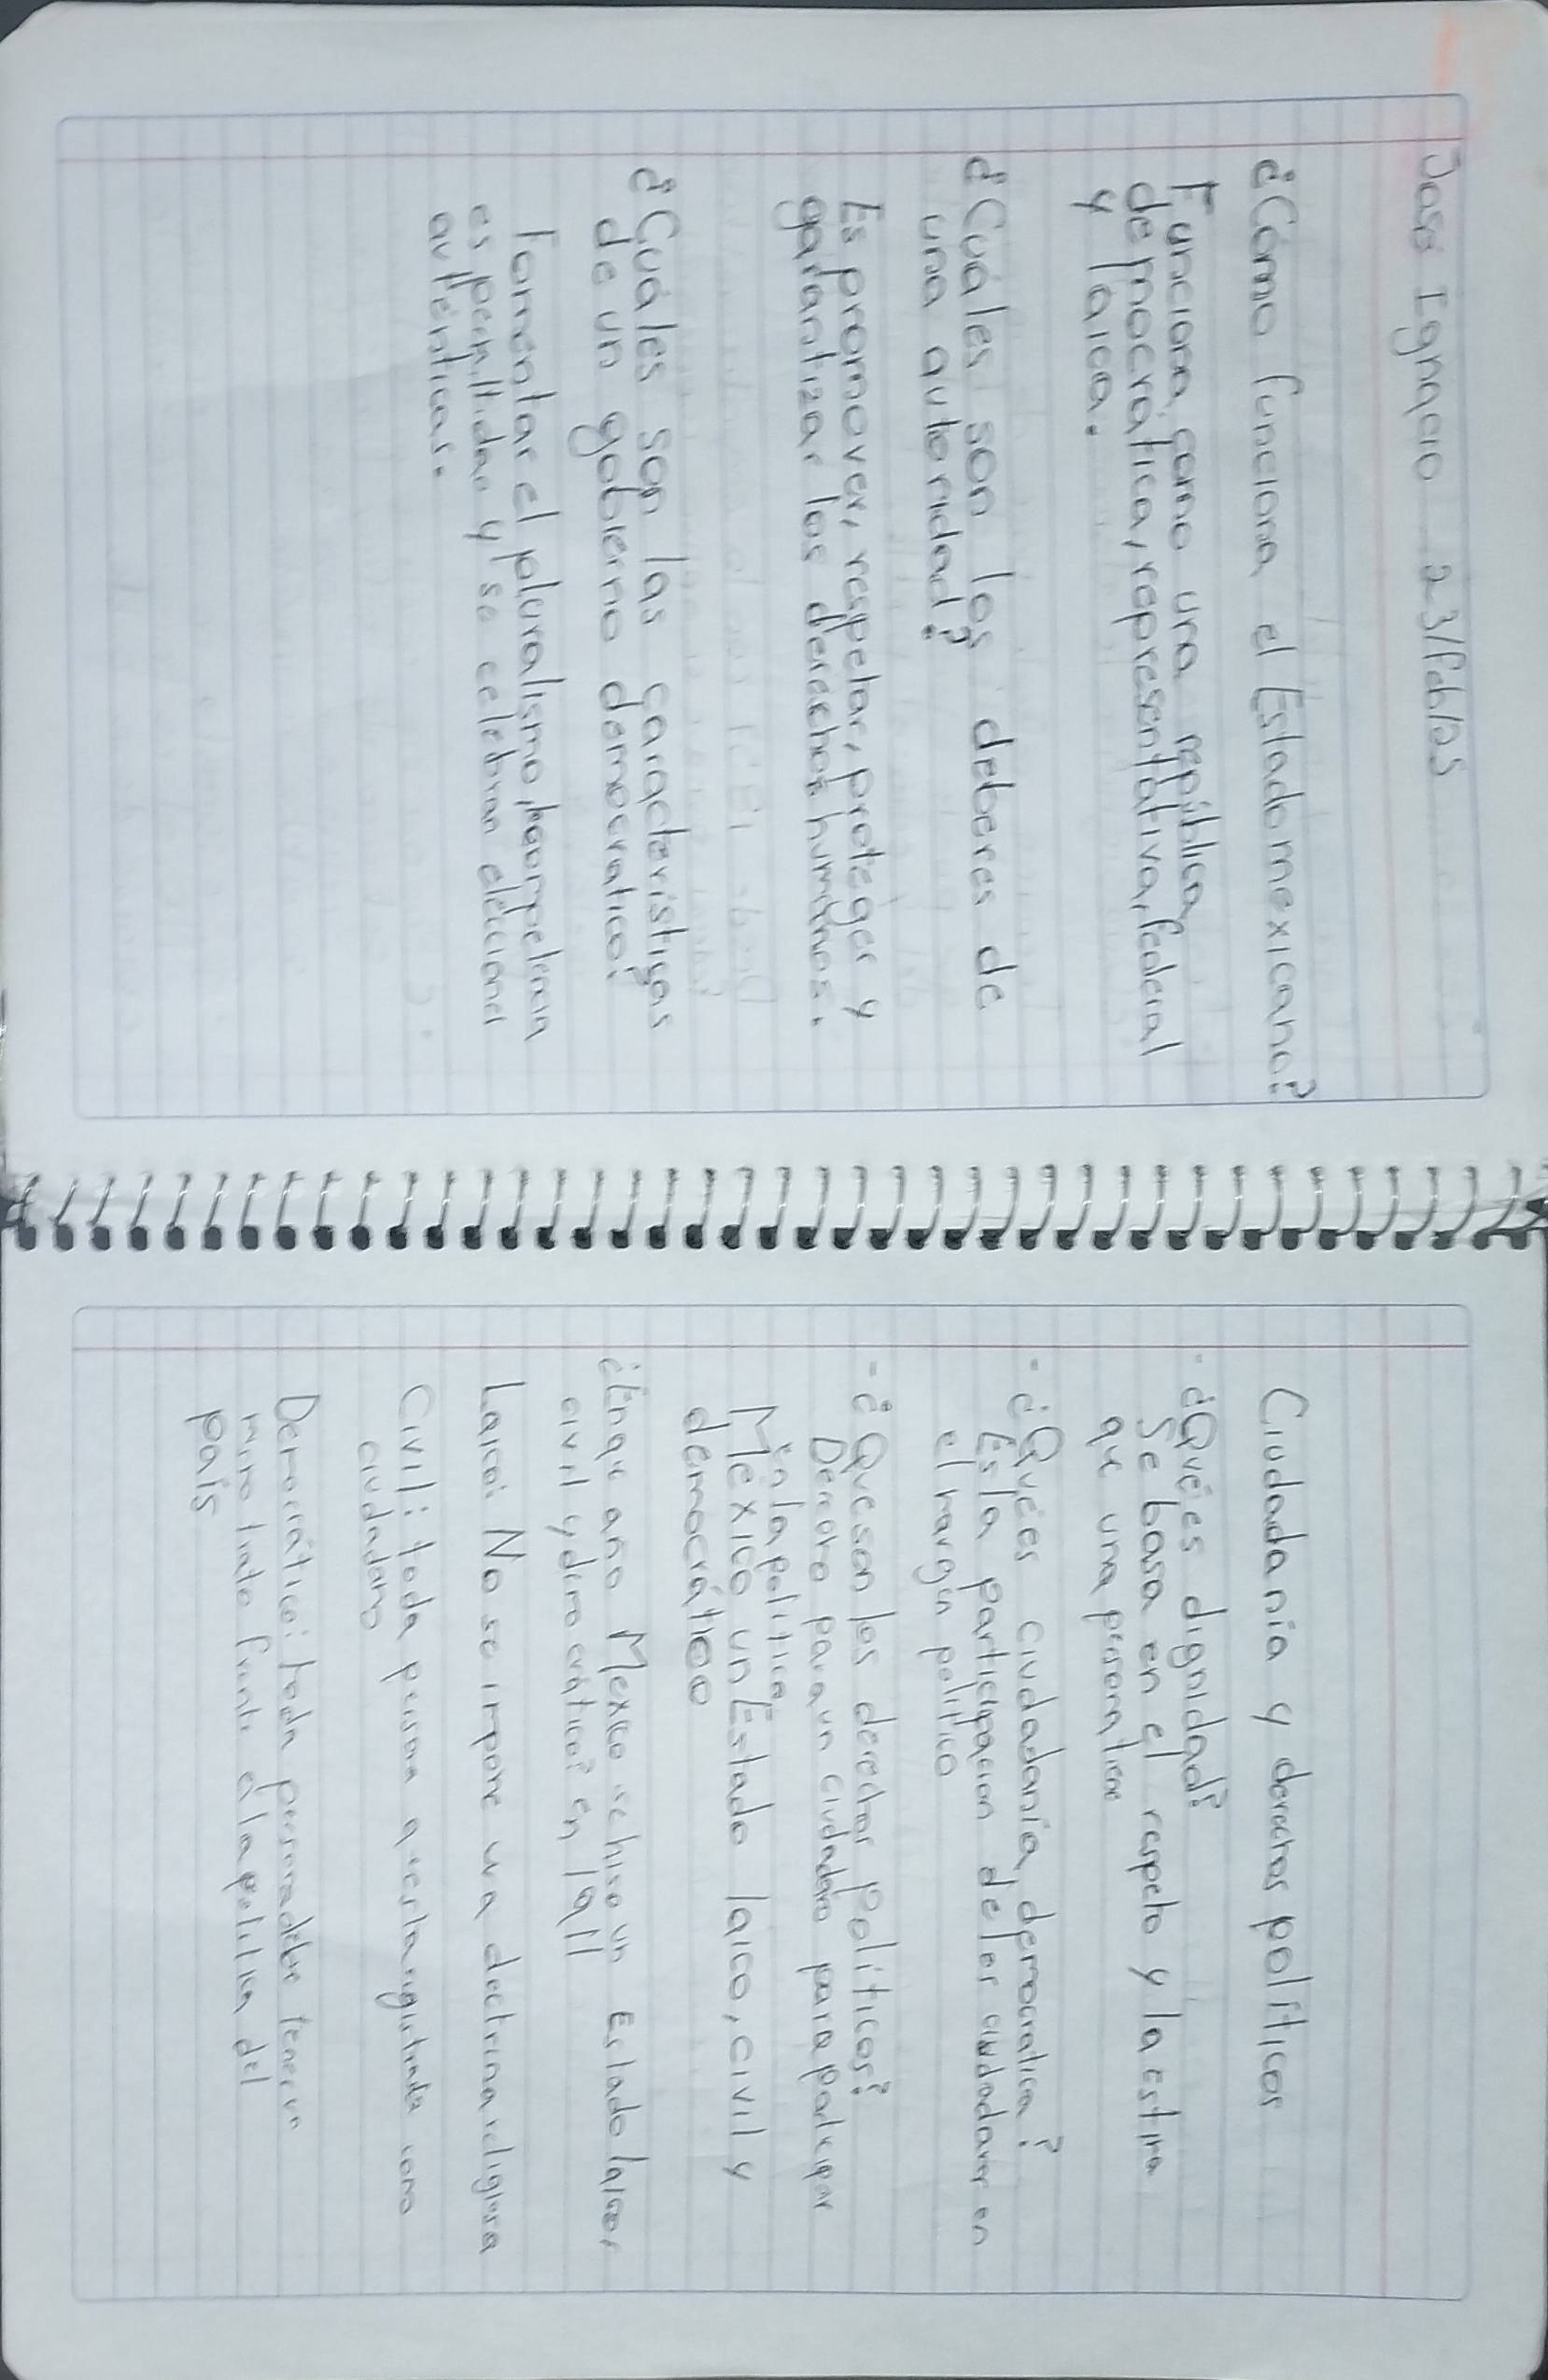 José Ignacio 23/feb/25
¿Cómo funciona el Estado mexicano?
Funciona como una república
democrática, representativa, federal
y laica.
¿Cuáles son los deberes de
una autoridad?
Es promover, respetar, proteger y
garantizar los derechos humanos.
¿Cuáles son las características
de un gobierno democratico?
Fomentar el pluralismo, competencia
es permitidas y se celebran eleccional
auténticas.
Ciudadanía y derectos políticos
- ¿Qué es dignidad?
Se basa en el respeto y la estima
que una persona tiene
- ¿Qué es ciudadanía democratica?
Es la participacion de los ciudadanos en
el margen politico
- ¿Que son los derectos politicos?
Derecto para un ciudadano para participar
en la politica
México un Estado laico, civil y
democrático
¿En que año Mexico se hiso un Estado laico,
civil y democrático? en 1911
Laico: No se impone una doctrina religiosa
Civil: toda persona q esta registrada como
ciudadano
Democrático: toda persona debe tener un
mismo trato frente a la politica del
país